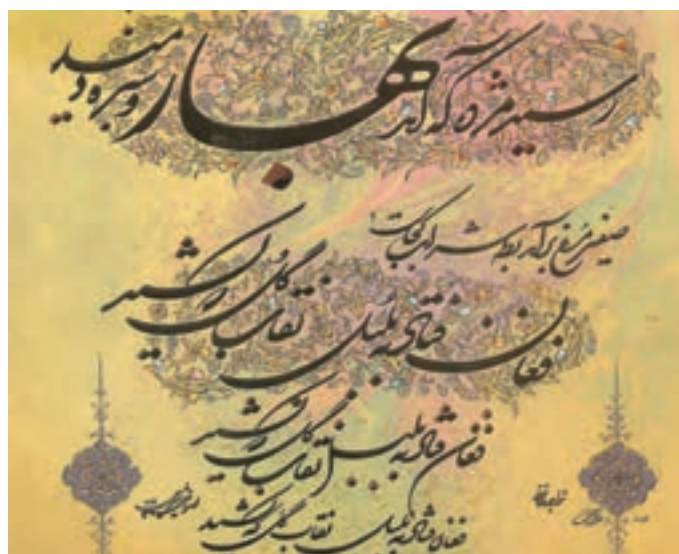 رسید مژده که آمد بهار و سبزه دمید
صفیر مرغ برآمد بط شراب کجاست
فغان فتاد به بلبل نقاب گل که کشید
فغان فتاد به بلبل نقاب گل که کشید
فغان فتاد به بلبل نقاب گل که کشید